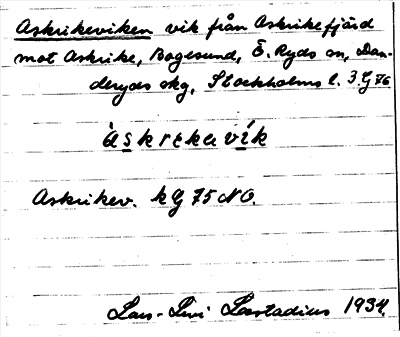 Askrikeviken vik från Askrikefjärd
mot Askrike, Bogesund, Ö. Ryds sn, Dan-
deryds skg, Stockholms l. 3.G 76
àskrekavík
Askrikev. kG 75 NO.
Lars-Levi Læstadius 1934.